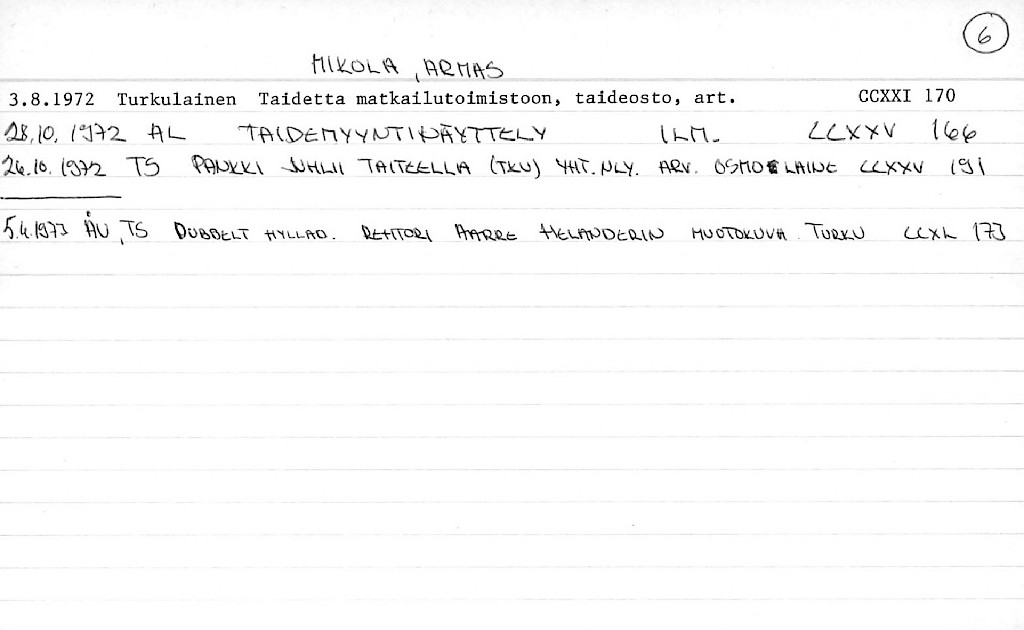 6
MIKOLA, ARMAS
3.8.1972 Turkulainen Taidetta matkailutoimistoon, taideosto, art. CCXXI 170
28.10.1972 AL TAIDEMYYNTINÄYTTELY ILM. CCXXV 166
26.10.1972 TS PANKKI JUHLII TAITEELLA (TKU) YHT.NLY. ARV. OSMO LAINE CCXXV 191
5.4.1973 ÅU, TS DUBBELT HYLLAD. REHTORI AARRE HELANDERIN MUOTOKUVA. TURKU CCXL 173